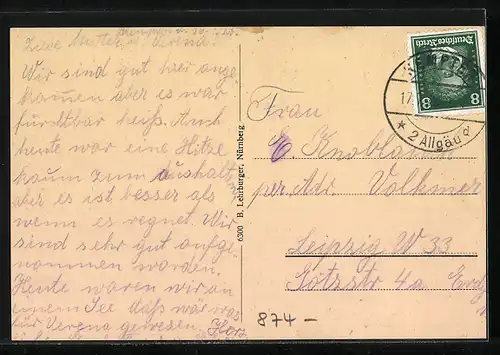 Liebe Mutter u. Verena!
Wir sind gut hier ange
kommen aber es war
furchtbar heiß. Auch
heute war eine Hitze
kaum zum aushalt
aber es ist besser als
wenn es regnet. Wir
sind sehr gut aufge-
nommen worden.
Heute waren wir an
einem See daß wär was
für Verena gewesen.
6300 B. Lehrburger, Nürnberg
Deutsches Reich
8 8
17.
* 2 Allgäu d
Frau
E. Knoblauch
per Adr Volkmer
Leipzig W 33
4a
874 -